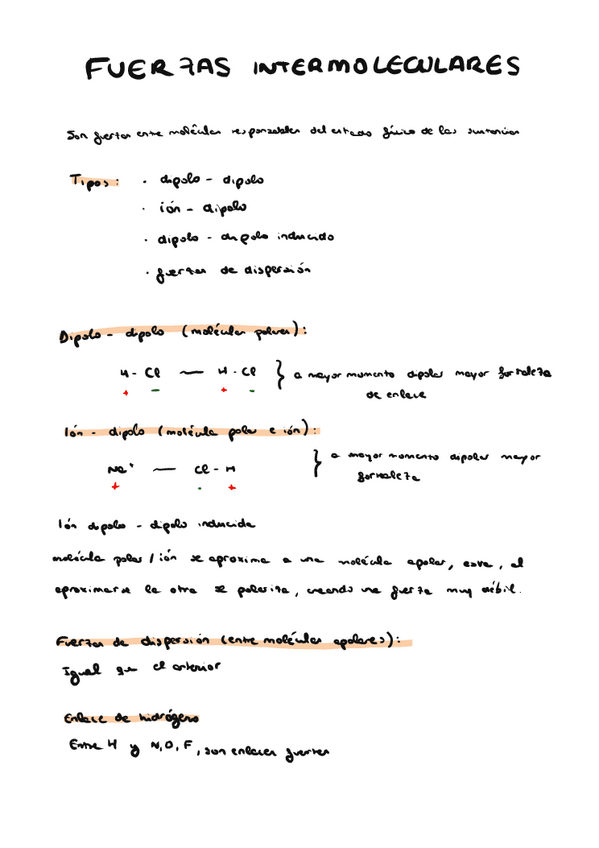 FUERZAS INTERMOLECULARES
Son fuerzas entre moléculas responsables del estado físico de las sustancias
Tipos: · dipolo - dipolo
· ión - dipolo
· dipolo - dipolo inducido
· fuerzas de dispersión
Dipolo - dipolo (moléculas polares):
H - Cl — H - Cl } a mayor momento dipolar mayor fortaleza
+ - + -
de enlace
Ión - dipolo (molécula polar e ión):
Na⁺ — Cl - H } a mayor momento dipolar mayor
+ - +
fortaleza
Ión dipolo - dipolo inducida
molécula polar / ión se aproxima a una molécula apolar, esta, al
aproximarse la otra se polariza, creando una fuerza muy débil.
Fuerzas de dispersión (entre moléculas apolares):
Igual que el anterior
Enlace de hidrógeno
Entre H y N, O, F, son enlaces fuertes